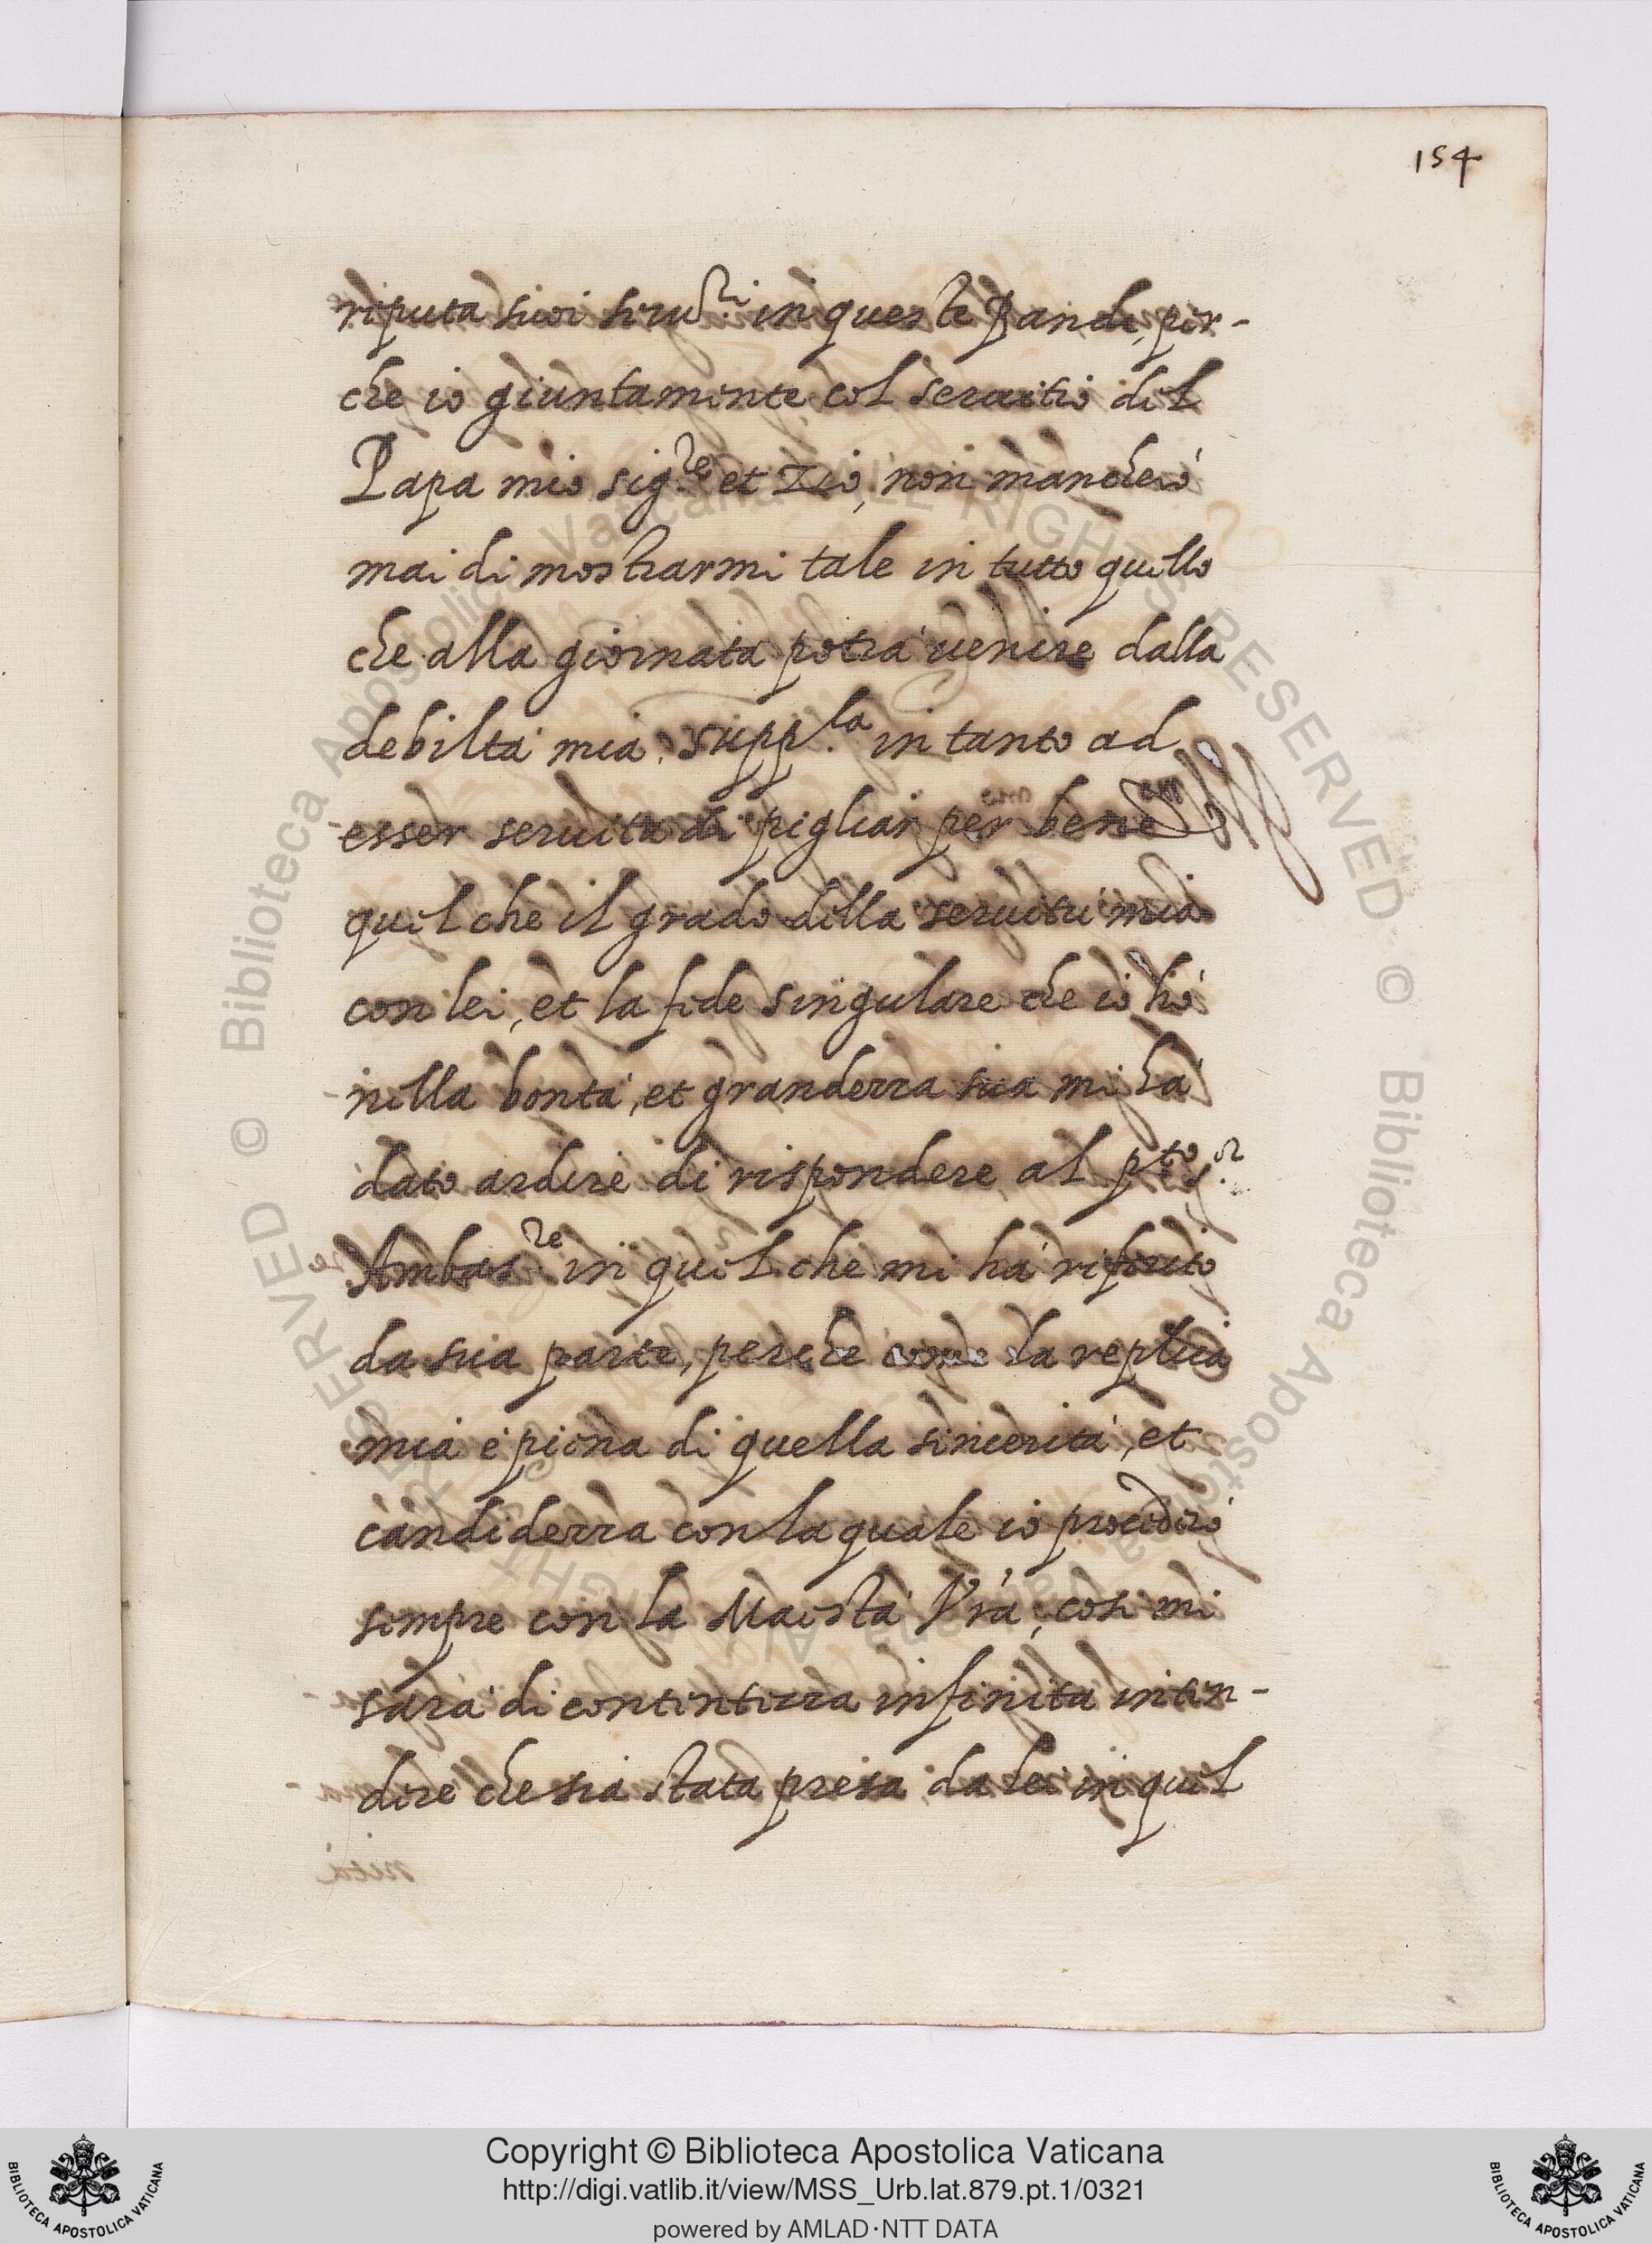 154
riputa suoi seru.ri in queste Bande, per-
che io giuntamente col seruitio del
Papa mio sig.re et Zio, non mancherò
mai di mostrarmi tale in tutto quello
che alla giornata potrà uenire dalla
debiltà mia. supp.la in tanto ad
esser seruita di pigliar per bene
quel che il grado della seruitù mia
con lei, et la fede singulare che io hò
nella bontà, et grandezza sua mi hà
dato ardire di rispondere al p.to s.r
Ambas.re in quel che mi hà riferito
da sua parte, perche come la replica
mia è piena di quella sincerità, et
candidezza con la quale io procederò
sempre con la Maestà Vra, cosi mi
sarà di contentezza infinita inten-
dere che sia stata presa da lei in quel
Biblioteca Apostolica Vaticana ALL RIGHTS RESERVED © Biblioteca Apostolica Vaticana ALL RIGHTS RESERVED ©
Copyright © Biblioteca Apostolica Vaticana
http://digi.vatlib.it/view/MSS_Urb.lat.879.pt.1/0321
powered by AMLAD·NTT DATA
BIBLIOTECA APOSTOLICA VATICANA
BIBLIOTECA APOSTOLICA VATICANA